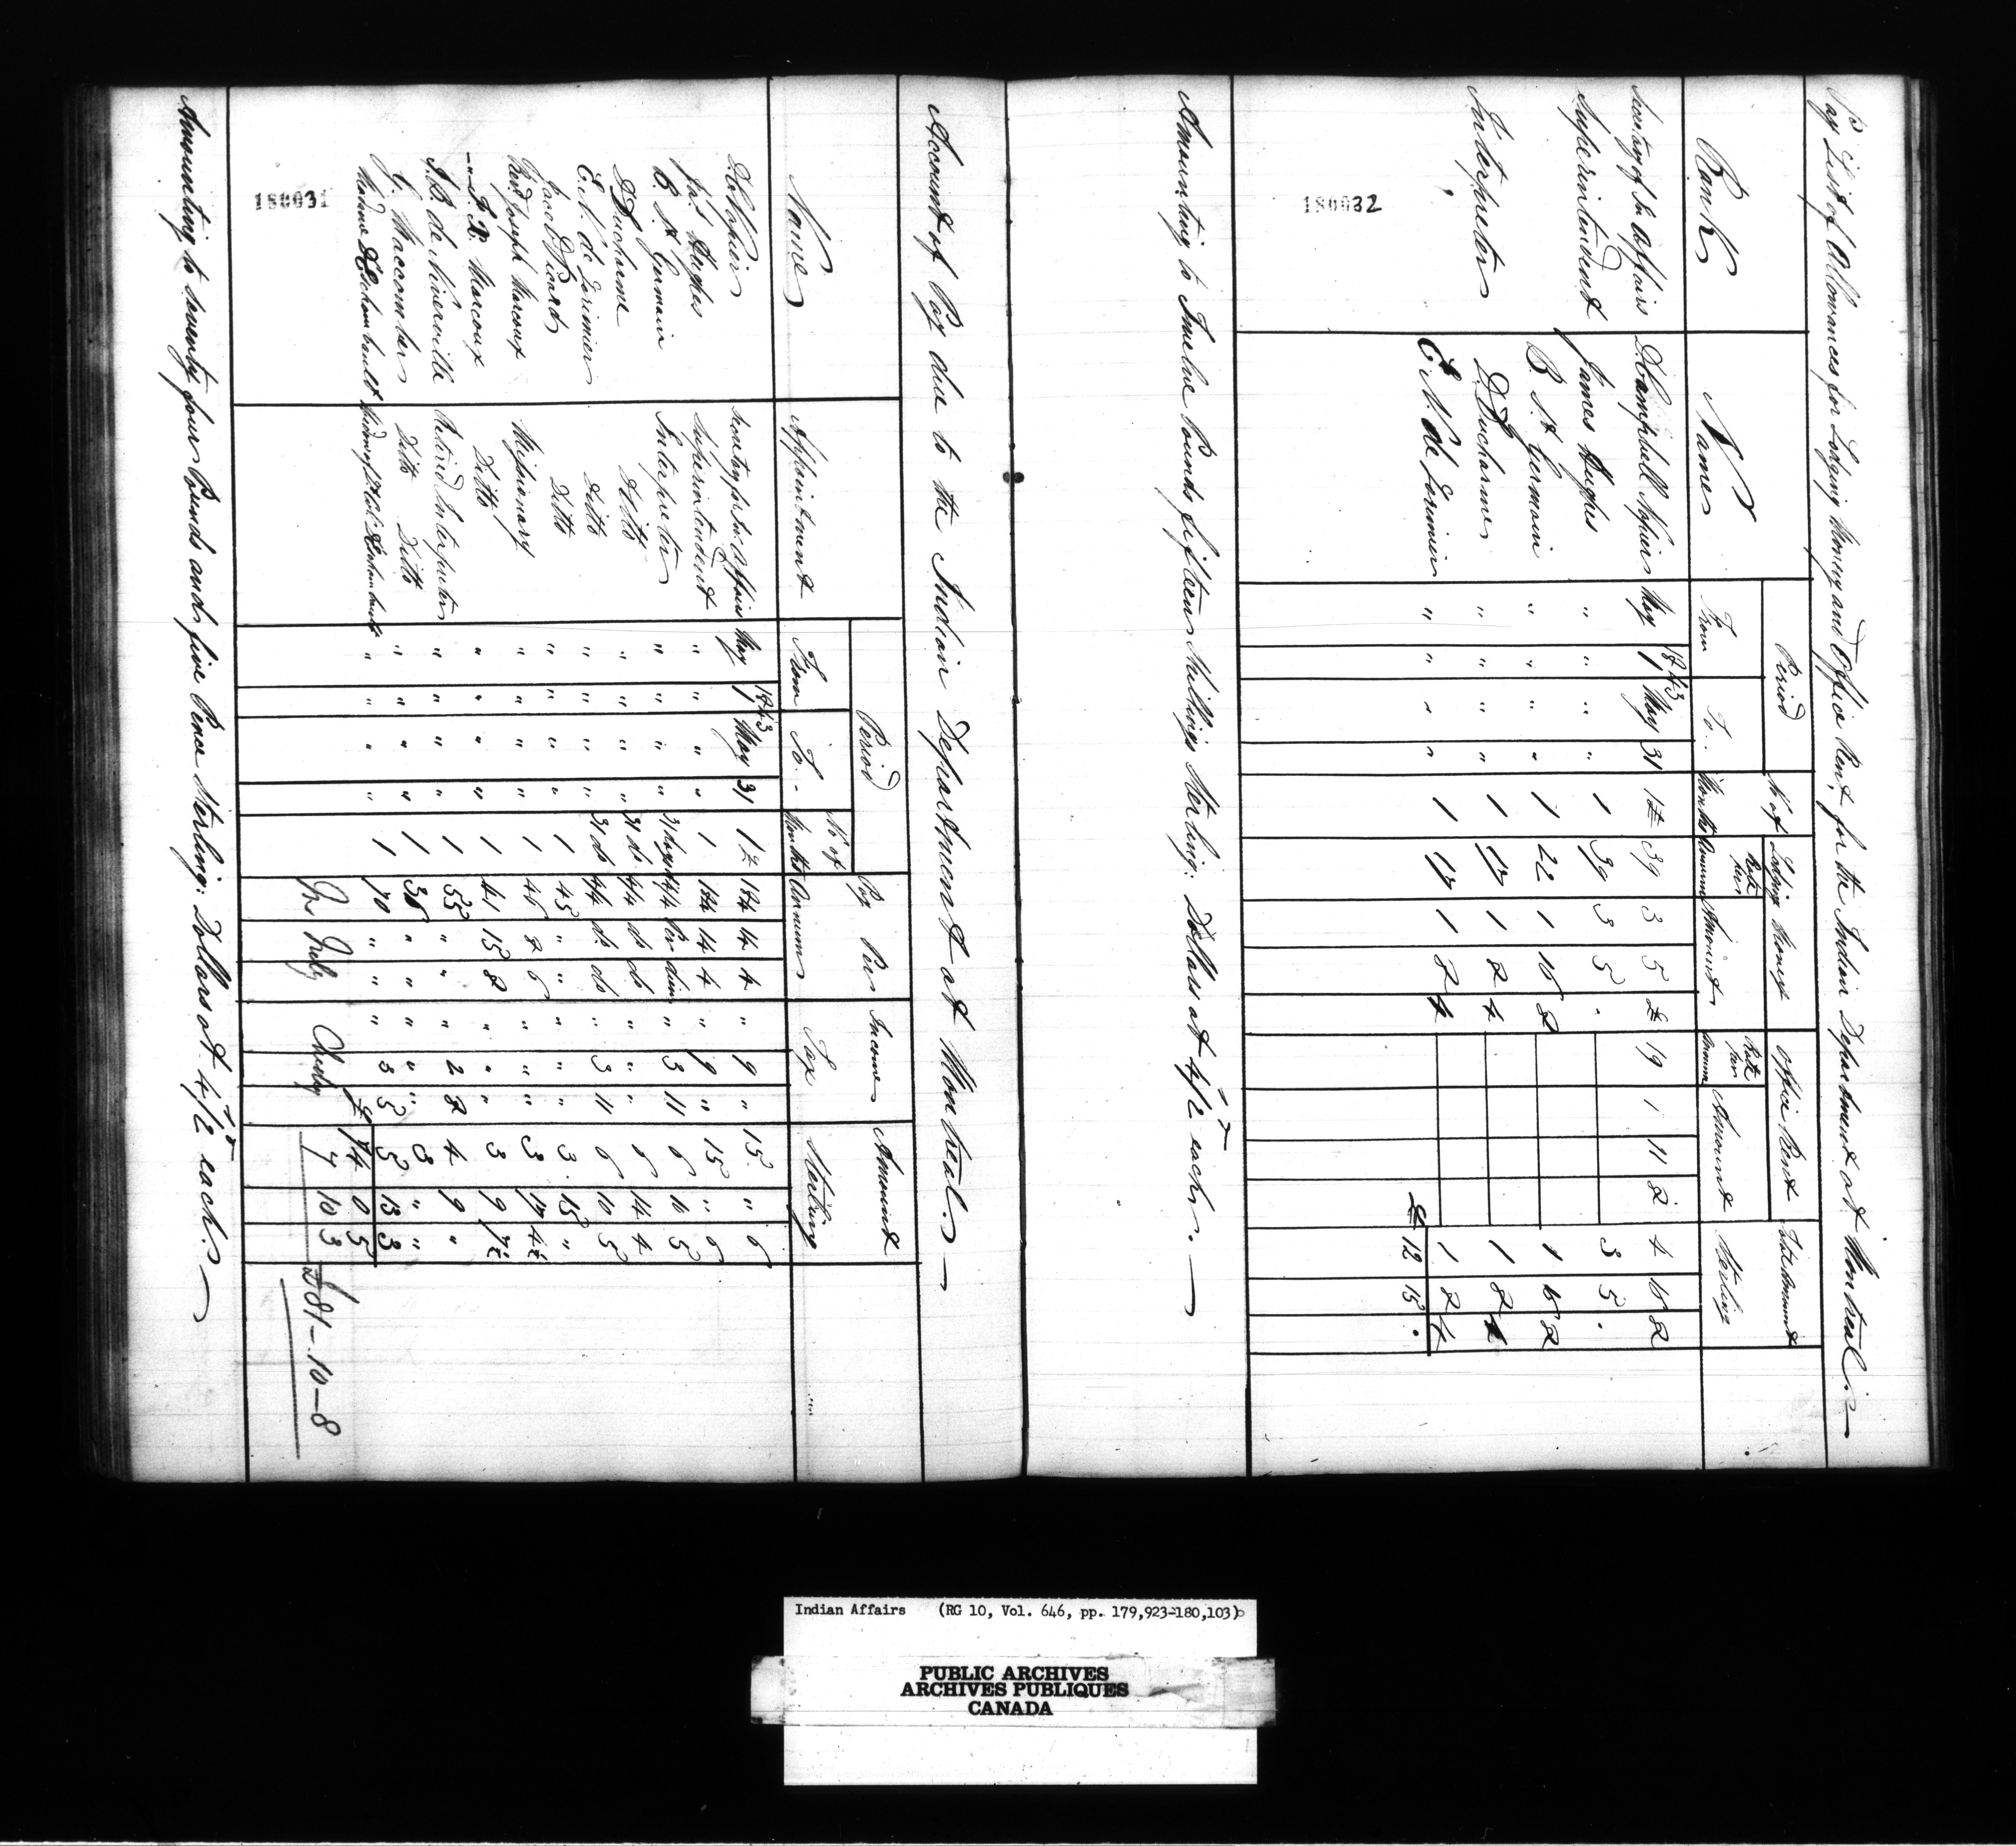 Pay List of Allowances for Lodging Money and Office Rent, for the Indian Department at Montreal.
Rank Name Period No of Months Lodging Money Office Rent Total Amount Sterling
From To Rate per Annum Amount Rate per Annum Amount
1843
Secretary of In Affairs D. Campbell Napier May 1 May 31 1 39 3 5 2 19 1 11 8 4 16 8
Superintendent James Hughes " " " " 1 39 3 5 . 3 5 .
Interpreter B. St Germain " " " " 1 22 1 16 8 1 16 8
D. Ducharme " " " " 1 17 1 8 4 1 8 4
E. N. de Lorimier " " " " 1 17 1 8 4 1 8 4
£ 12 15 .
180032
Amounting to Twelve Pounds fifteen Shillings Sterling. Dollars at 4/2 each.
Account of Pay due to the Indian Department at Montreal.
Name Appointment Period No of Months Pay Per Annum Income Tax Amount Sterling
From To
1843
D. C. Napier Secretary for In. Affairs May 1 May 31 1 184 14 4 " 9 " 15 " 6
Jas Hughes Superintendent " " " " 1 184 14 4 " 9 " 15 " 6
B. St Germain Interpreter " " " " 31 days 4/4 Per diem " 3 11 6 16 5
D. Ducharme Ditto " " " " 31 do 4/4 do do " " " 6 14 4
E. N. de Lorimier Ditto " " " " 31 do 4/4 do do " 3 11 6 10 5
Jacob Picard Ditto " " " " 1 45 " " " " " 3 15 "
Revd Joseph Marcoux Missionary " " " " 1 46 8 6 " " " 3 17 4½
-"- F. X. Marcoux Ditto " " " " 1 41 15 8 " " " 3 9 7½
J. B. de Niverville Retired Interpreter " " " " 1 55 " " " 2 8 4 9 "
G. Maccomber Ditto Ditto " " " " 1 36 " " " " " 3 " "
Madme De Echambault Widow of Lt Col. De Echambault " " " " 1 70 " " " 3 5 5 13 3
£ 74 0 5
7 10 3
£81-10-8
180031
Amounting to Seventy four Pounds and five Pence Sterling: Dollars at 4/2 each.
Indian Affairs (RG 10, Vol. 646, pp. 179,923-180,103)
PUBLIC ARCHIVES
ARCHIVES PUBLIQUES
CANADA